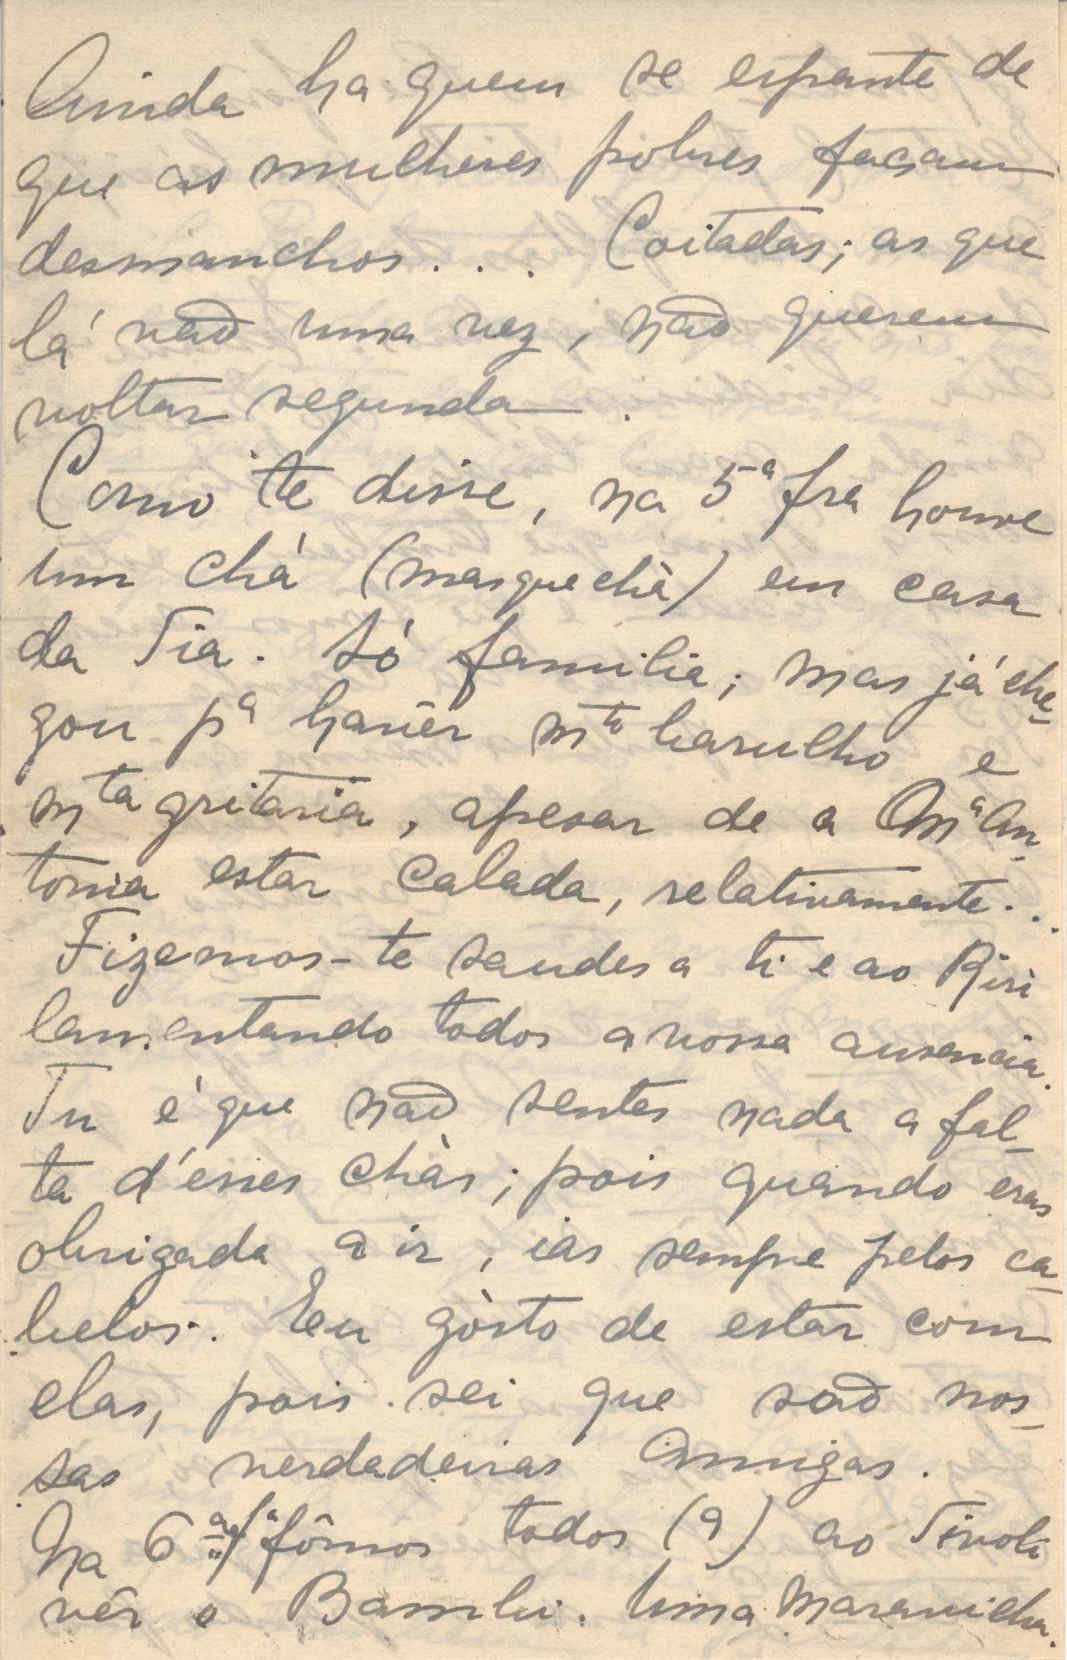 Ainda ha quem se espante de
que as mulheres pobres façam
desmanchos. . . Coitadas; as que
lá vão uma vez, não querem
voltar segunda.
Como te disse, na 5ª fra houve
um chá (mas que chá) em casa
da Tia. Só familia; mas já che-
gou pª havêr mto barulho e
mta gritaria, apesar de a Mª An-
tonia estar calada, relativamente..
Fizemos-te saudes a ti e ao Riri
lamentando todos a vossa ausencia.
Tu é que não sentes nada a fal-
ta d'esses chás; pois quando eras
obrigada a ir, ias sempre pelos ca-
belos. Eu gòsto de estar com
elas, pois sei que são nos-
sas verdadeiras Amigas.
Na 6ª fª fômos todos (9) ao Tivoli
vêr o Bambi. Uma Maravilha.